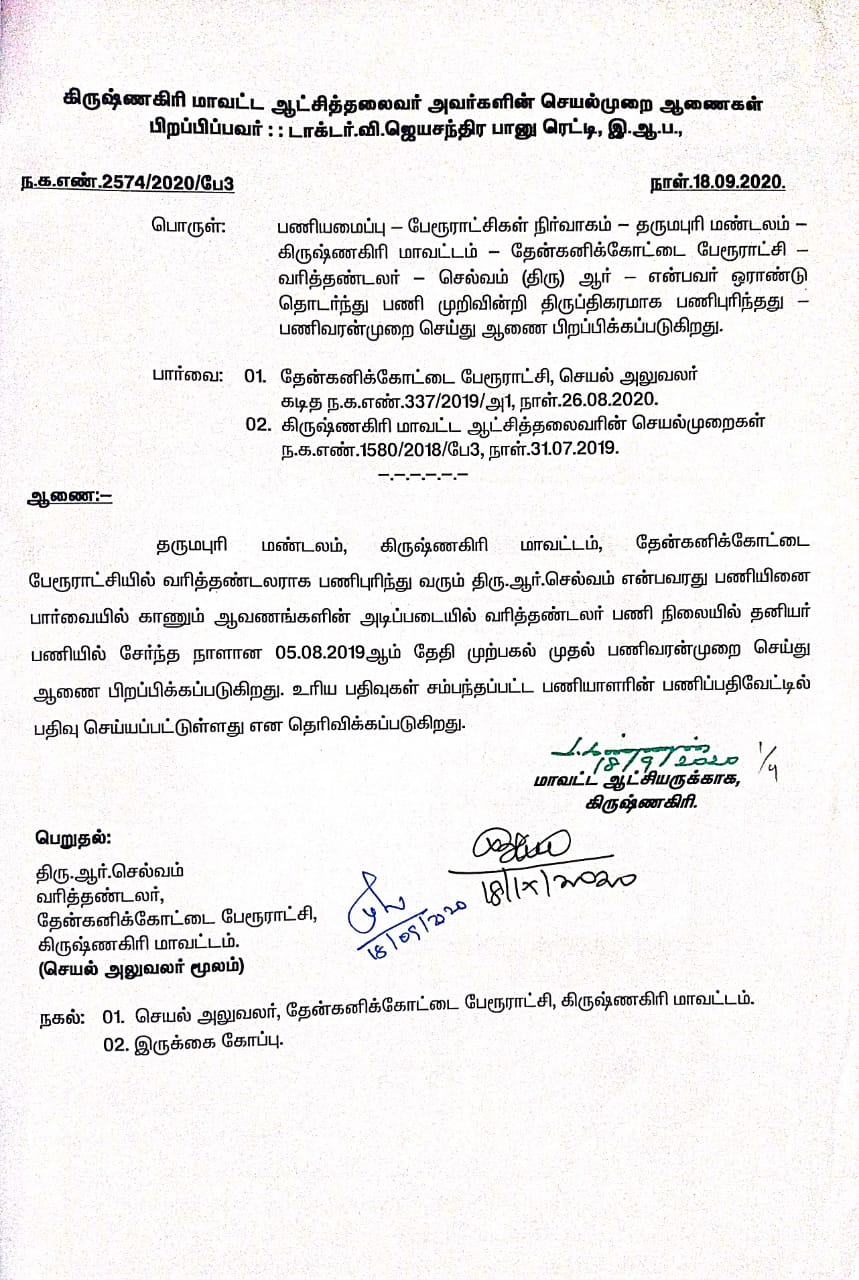 கிருஷ்ணகிரி மாவட்ட ஆட்சித்தலைவர் அவர்களின் செயல்முறை ஆணைகள்
பிறப்பிப்பவர் : : டாக்டர்.வி.ஜெயசந்திர பானு ரெட்டி, இ.ஆ.ப.,
ந.க.எண்.2574/2020/பே3 நாள்.18.09.2020.
பொருள்: பணியமைப்பு – பேரூராட்சிகள் நிர்வாகம் – தருமபுரி மண்டலம் –
கிருஷ்ணகிரி மாவட்டம் – தேன்கனிக்கோட்டை பேரூராட்சி –
வரித்தண்டலர் – செல்வம் (திரு) ஆர் – என்பவர் ஓராண்டு
தொடர்ந்து பணி முறிவின்றி திருப்திகரமாக பணிபுரிந்தது –
பணிவரன்முறை செய்து ஆணை பிறப்பிக்கப்படுகிறது.
பார்வை: 01. தேன்கனிக்கோட்டை பேரூராட்சி, செயல் அலுவலர்
கடித ந.க.எண்.337/2019/அ1, நாள்.26.08.2020.
02. கிருஷ்ணகிரி மாவட்ட ஆட்சித்தலைவரின் செயல்முறைகள்
ந.க.எண்.1580/2018/பே3, நாள்.31.07.2019.
–.–.–.–.–.–
ஆணை:–
தருமபுரி மண்டலம், கிருஷ்ணகிரி மாவட்டம், தேன்கனிக்கோட்டை
பேரூராட்சியில் வரித்தண்டலராக பணிபுரிந்து வரும் திரு.ஆர்.செல்வம் என்பவரது பணியினை
பார்வையில் காணும் ஆவணங்களின் அடிப்படையில் வரித்தண்டலர் பணி நிலையில் தனியர்
பணியில் சேர்ந்த நாளான 05.08.2019ஆம் தேதி முற்பகல் முதல் பணிவரன்முறை செய்து
ஆணை பிறப்பிக்கப்படுகிறது. உரிய பதிவுகள் சம்பந்தப்பட்ட பணியாளரின் பணிப்பதிவேட்டில்
பதிவு செய்யப்பட்டுள்ளது என தெரிவிக்கப்படுகிறது.
18/9/2020
மாவட்ட ஆட்சியருக்காக,
கிருஷ்ணகிரி.
பெறுதல்:
திரு.ஆர்.செல்வம்
வரித்தண்டலர்,
தேன்கனிக்கோட்டை பேரூராட்சி,
கிருஷ்ணகிரி மாவட்டம்.
(செயல் அலுவலர் மூலம்)
18/09/2020
18/IX/2020
நகல்: 01. செயல் அலுவலர், தேன்கனிக்கோட்டை பேரூராட்சி, கிருஷ்ணகிரி மாவட்டம்.
02. இருக்கை கோப்பு.